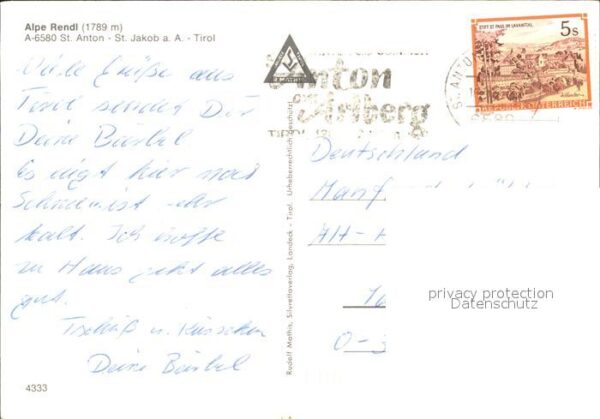 Alpe Rendl (1789 m)
A-6580 St. Anton - St. Jakob a. A. - Tirol
Viele Grüße aus
Tirol sendet Dir
Deine Bärbel
Es liegt hier noch
Schnee ist aber
kalt. Ich hoffe
zu Hause jetzt alles
gut.
Tschüß u. Küsschen
Deine Bärbel
4333
Rudolf Mathis, Silvrettaverlag, Landeck - Tirol. Urheberrechtlich geschützt.
Anton
am Arlberg
STIFT ST. PAUL IM LAVANTTAL
5s
REPUBLIK ÖSTERREICH
ST. ANTO
6580
Deutschland
Alt-
O-
privacy protection
Datenschutz